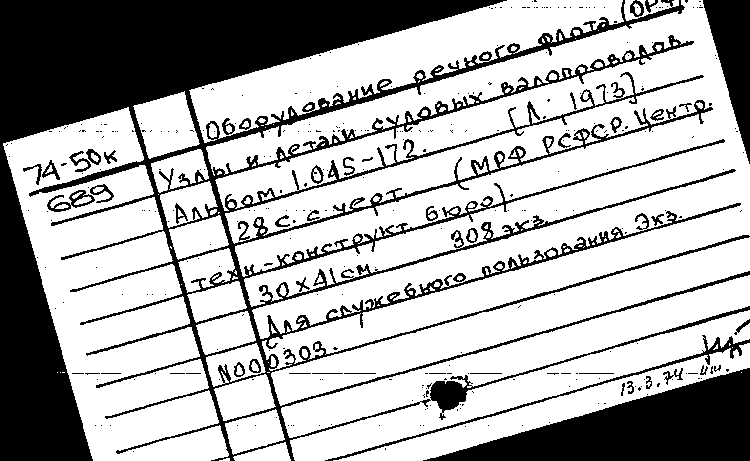 Оборудование речного флота. (ОРФ).
74-50к
689
Узлы и детали судовых валопроводов.
Альбом. 1.045-172. [Л., 1973].
28 с. с черт. (МРФ РСФСР. Центр.
техн.-конструкт. бюро).
30×41см. 308 экз.
Для служебного пользования. Экз.
N000303.
13.3.74